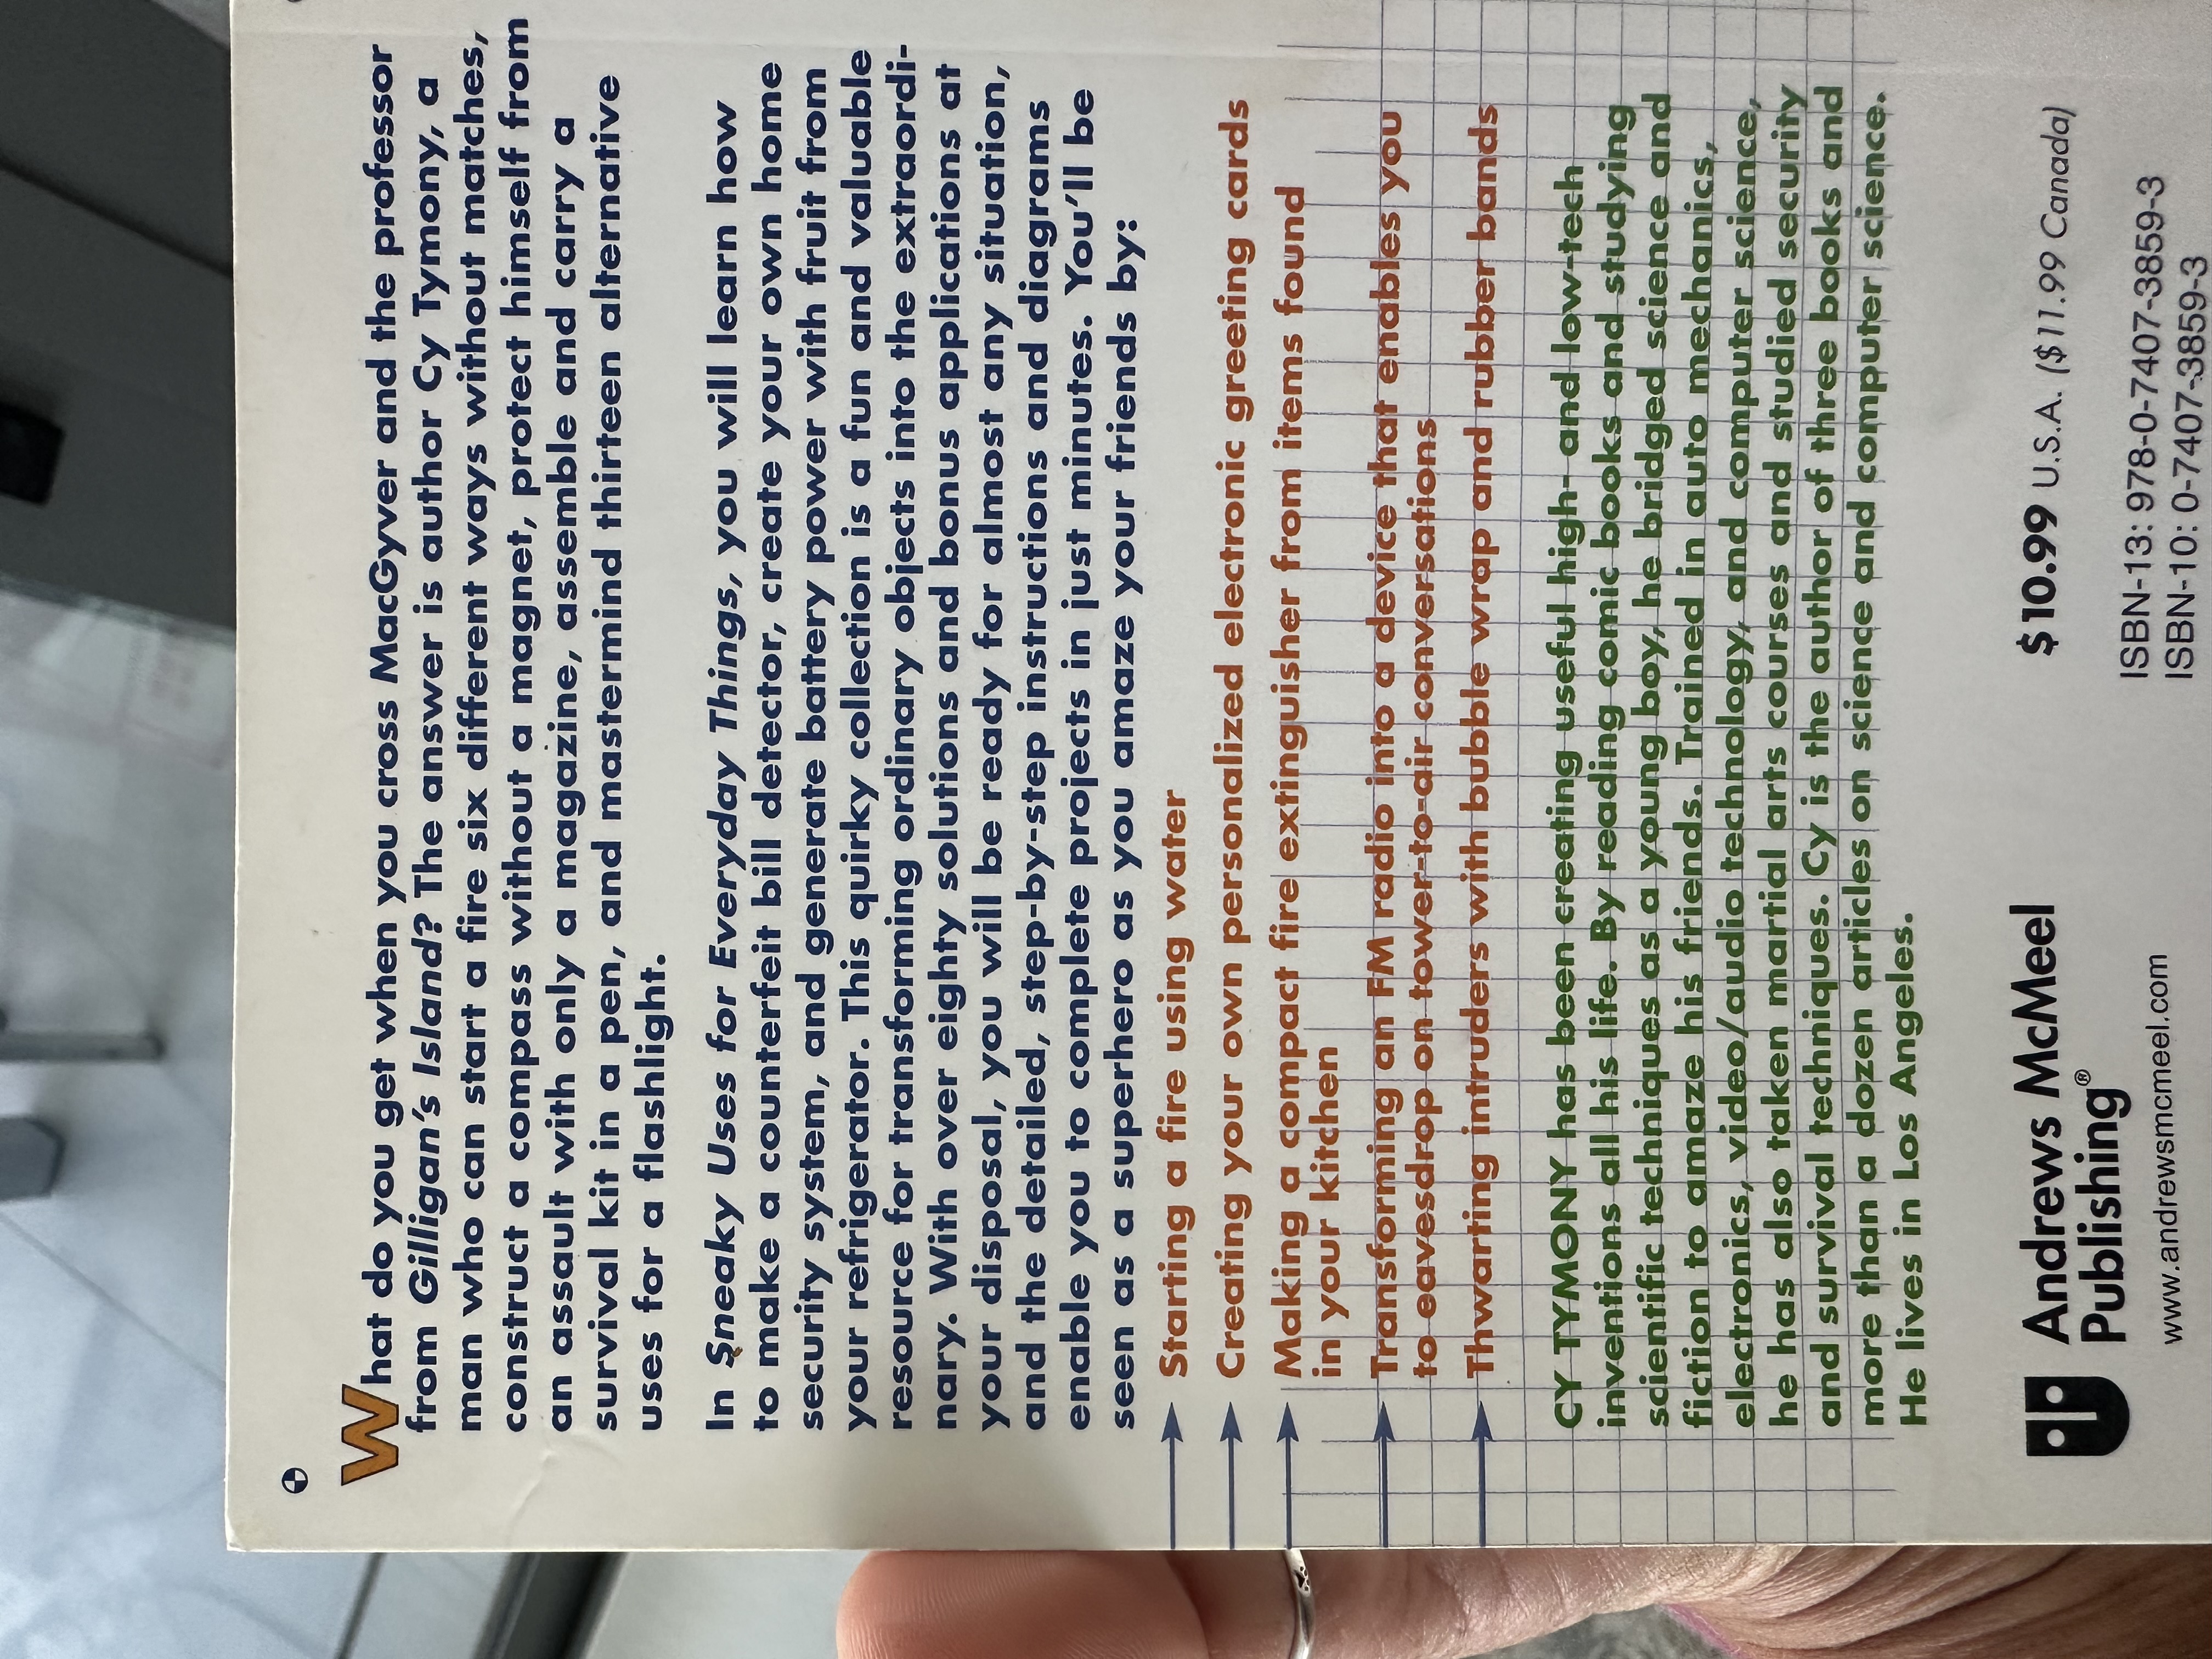 What do you get when you cross MacGyver and the professor
from Gilligan's Island? The answer is author Cy Tymony, a
man who can start a fire six different ways without matches,
construct a compass without a magnet, protect himself from
an assault with only a magazine, assemble and carry a
survival kit in a pen, and mastermind thirteen alternative
uses for a flashlight.
In Sneaky Uses for Everyday Things, you will learn how
to make a counterfeit bill detector, create your own home
security system, and generate battery power with fruit from
your refrigerator. This quirky collection is a fun and valuable
resource for transforming ordinary objects into the extraordi-
nary. With over eighty solutions and bonus applications at
your disposal, you will be ready for almost any situation,
and the detailed, step-by-step instructions and diagrams
enable you to complete projects in just minutes. You'll be
seen as a superhero as you amaze your friends by:
Starting a fire using water
Creating your own personalized electronic greeting cards
Making a compact fire extinguisher from items found
in your kitchen
Transforming an FM radio into a device that enables you
to eavesdrop on tower-to-air conversations
Thwarting intruders with bubble wrap and rubber bands
CY TYMONY has been creating useful high- and low-tech
inventions all his life. By reading comic books and studying
scientific techniques as a young boy, he bridged science and
fiction to amaze his friends. Trained in auto mechanics,
electronics, video/audio technology, and computer science,
he has also taken martial arts courses and studied security
and survival techniques. Cy is the author of three books and
more than a dozen articles on science and computer science.
He lives in Los Angeles.
Andrews McMeel
Publishing®
www.andrewsmcmeel.com
$10.99 U.S.A. ($11.99 Canada)
ISBN-13: 978-0-7407-3859-3
ISBN-10: 0-7407-3859-3